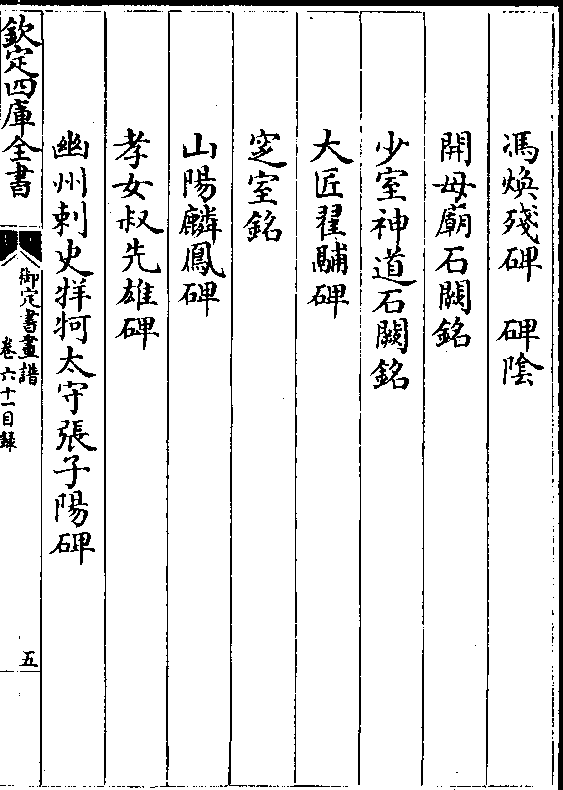 馮煥殘碑　碑陰
開母廟石闕銘
少室神道石闕銘
大匠翟酺碑
窆室銘
山陽麟鳳碑
孝女叔先雄碑
幽州刺史牂牁太守張子陽碑
欽定四庫全書
御定書畫譜
卷六十一目録
五